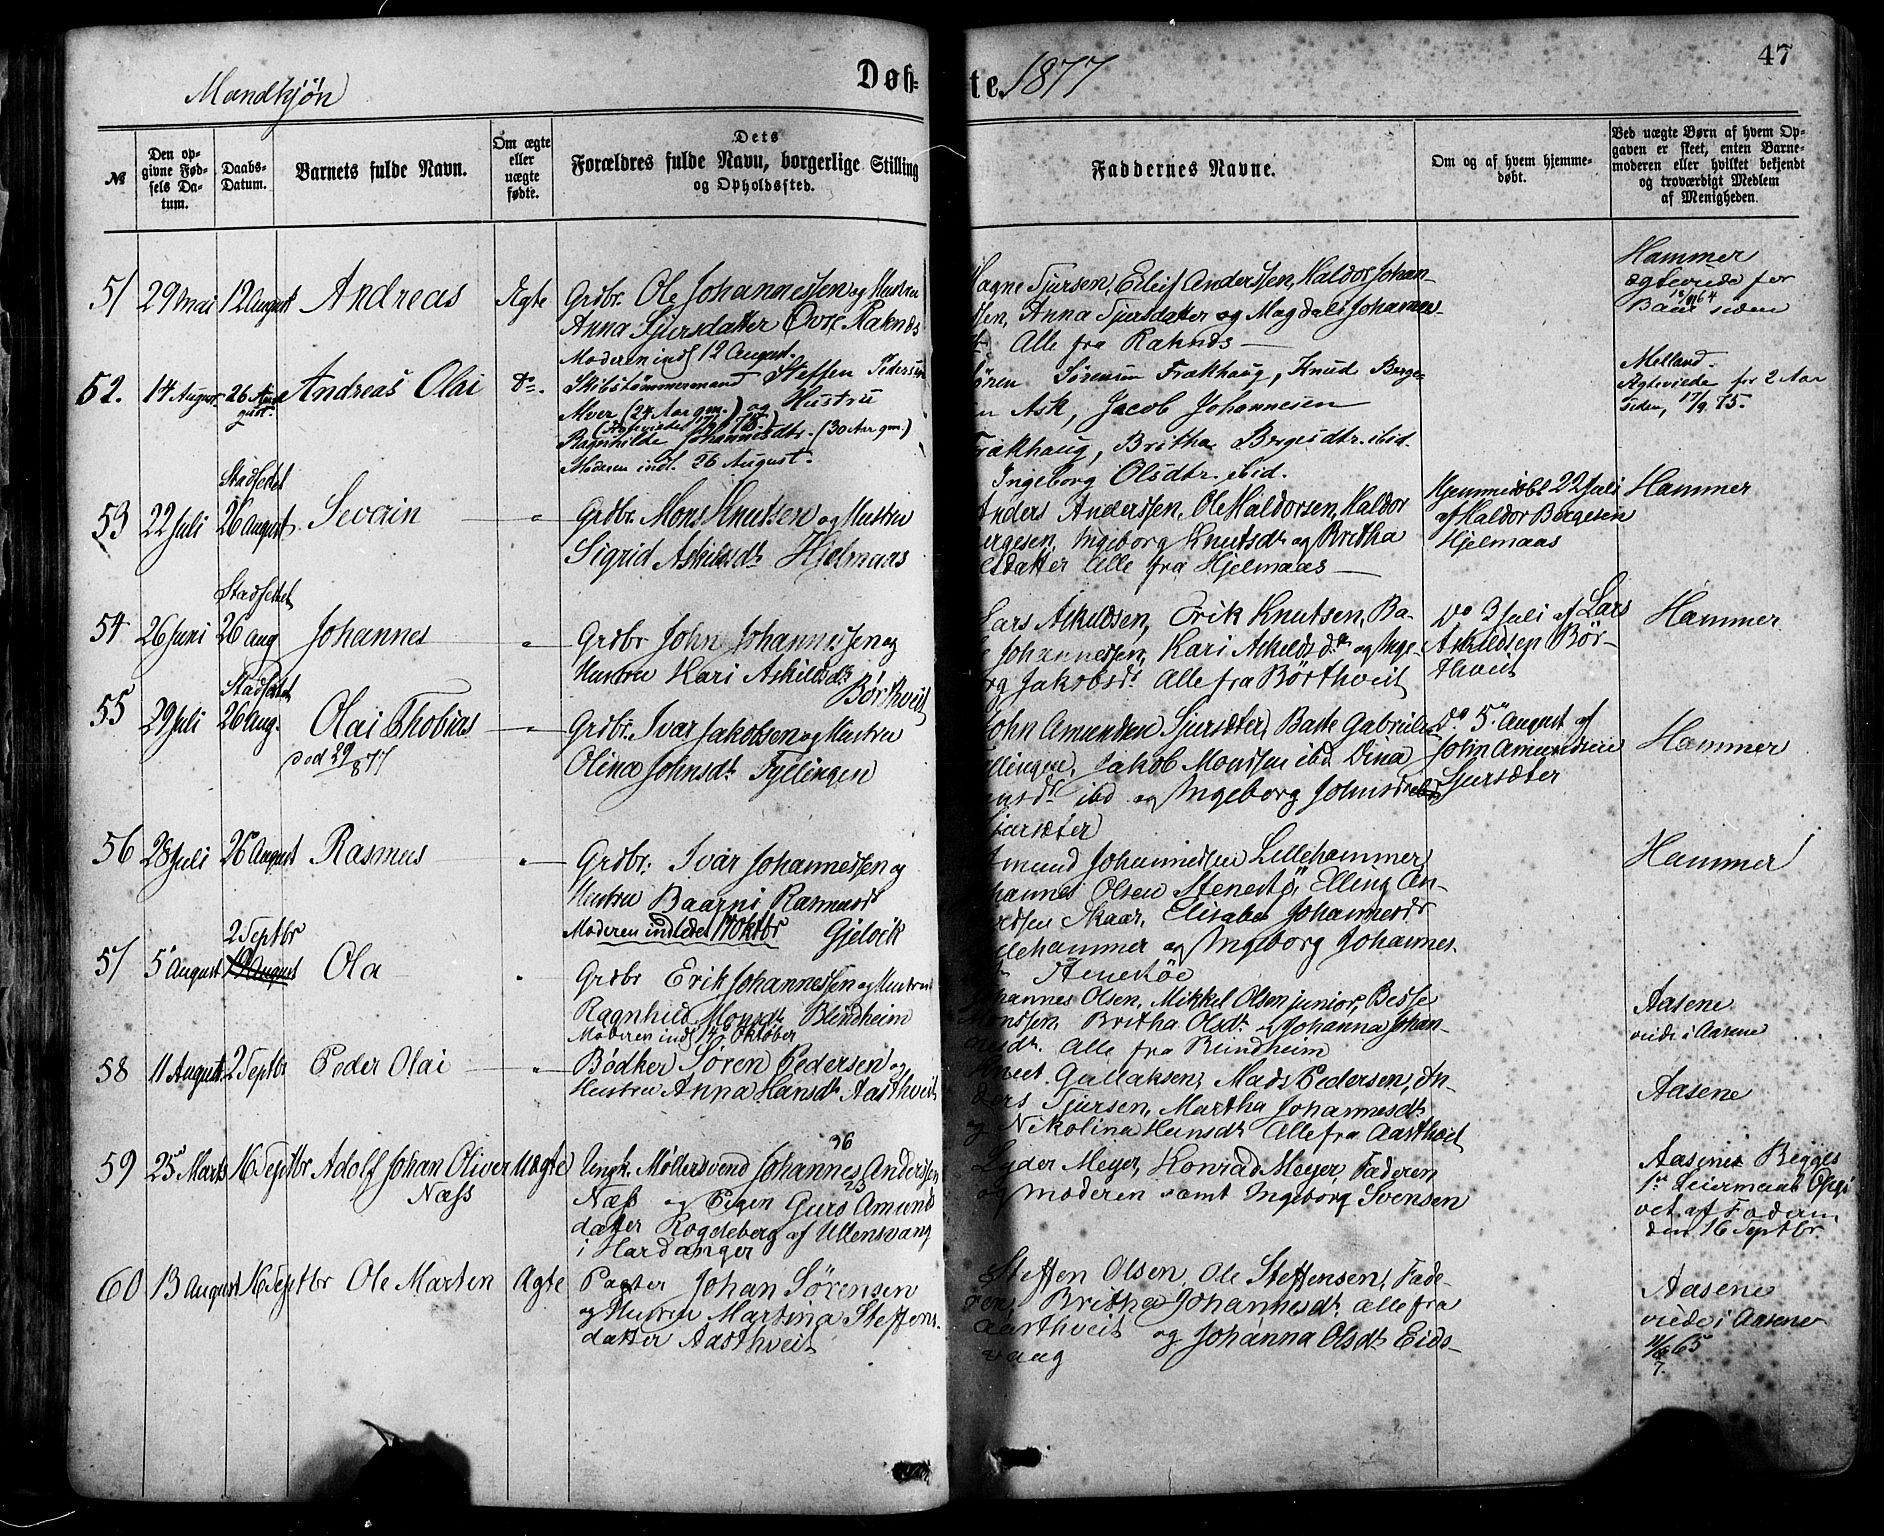 47
Mandkjön
Døb=
te. 1877
№
Den op-
givne Fød-
sels Da-
tum.
Daabs-
Datum.
Barnets fulde Navn.
Om ægte
eller
uægte
fødte.
Dets
Forældres fulde Navn, borgerlige Stilling
og Opholdssted.
Faddernes Navne.
Om og af hvem hjemme-
døbt.
Ved uægte Børn af hvem Op-
gaven er skeet, enten Barne-
moderen eller hvilket bekjendt
og troværdigt Medlem
af Menigheden.
51 29 mai 12 August Andreas Ægte
Grdbr. Ole Johannessen og Hustru
Anna Sjursdatter Øvre Raknæs
Moderen indl 12 August.
Magne Sjursen, Eilif Anderssen, Haldor Johan-
ssen, Anna Sjursdatter og Magdali Johannes
Alle fra Raknæs
Hammer
ægteviede for
Baar siden
52. 14 August 26 Au-
gust. Andreas Olai Do.
Skibstømmermand Steffen Pedersen
Alver (24 Aar gm.) og Hustru
(Ægteviede 17/9 75.)
Ragnhilde Johannesdtr. (30 Aar gm.)
Moderen indl. 26 August.
Sören Sörensen Frakhaug, Knud Berge-
en Ask, Jacob Johannesen
Frakhaug, Britha Bergesdtr. ibid.
Ingeborg Olsdtr. ibid.
Melland.
Ægteviede for 2 Aar
siden, 17/9. 75.
Stadfestet
53 22 Juli 26 August Severin "
Grdbr. Mons Knutsen og Hustru
Sigrid Askildsdr Hjelmaas
Anders Anderssen, Ole Haldorsen, Haldor
Bergesen, Ingeborg Knutsdr og Britha
Olsdatter alle fra Hjelmaas
Hjemmedöbt 22 Juli
af Haldor Bergesen
Hjelmaas
Hammer
Stadfestet
54 26 Juni 26 aug Johannes "
Grdbr John Johannessen og
Hustru Kari Askildsdr
Börthveit
Lars Askildsen, Erik Knutsen, Ba-
Johannessen, Kari Askildsdr og Inge-
org Jakobsdr Alle fra Börthveit
Do 3 Juli af Lars
Askildsen Bör-
thveit
Hammer
Stadfestet
55 29 Juli 26 Aug. Olai Thobias "
död 29/8 77
Grdbr. Ivar Jakobsen og Hustru
Olina Johnsdr Fyllingen
John Amundsen Sjursæter, Baste Gabrielsen
Fyllingen, Jakob Monssen ibd Dina
ensdr ibd og Ingeborg Johnsdr
Sjursæter
Do 5 August af
John Amundsen
Sjursæter
Hammer
56 28 Juli 26 August Rasmus "
Grdbr. Ivar Johannessen og
Hustru Baarni Rasmusdr
Moderen indledet 14 Oktbr Gjelvik
Amund Johannessen Lillehammer,
Johannes Olsen Stenestö, Elling An-
derssen Skaar, Elisabe Johannesdr
Lillehammer og Ingeborg Johannes-
dr Stenestöe
Hammer
2 Septbr
57 5 August 19 August Ola "
Grdbr Erik Johannessen og Hustru
Ragnhild Monsdr Blindheim
Moderen indl 14 Oktober
Johannes Olsen, Mikkel Olsen junior, Besse
Monssen, Britha Olsdr og Johanna Johan-
nesdr. Alle fra Blindheim
Aasene
viede i Aasene
58 11 August 2 Septbr Peder Olai "
Bödker Sören Pedersen og
Hustru Anna Hansdr Aasthveit
Gullaksen, Mads Pedersen, An-
ders Sjursen, Martha Johannesdr
og Nikolina Hansdr Alle fra Aasthveit
Aasene
59 25 Marts 16 Septbr Adolf Johan Oliver Uægte
Næss
36
Ungk. Møllersvend Johannes Anderssen
23
Næss og Pigen Guro Amunds
datter Rogdeberg af Ullensvang
i Hardanger
Lyder Meyer, Konrad Meyer, Faderen
og moderen samt Ingeborg Svensen
Aasene Begges
1ste Leiermaal Opgi
vet af Faderen
den 16 Septbr.
60 13 August 16 Septbr Ole Marten Ægte
Pagter Johan Sörensen
og Hustru Martina Steffens-
datter Aasthveit
Steffen Olsen, Ole Steffensen, Fade-
ren, Britha Johannesdr, alle fra
Aasthveit og Johanna Olsdr Eids-
vaag
Aasene
viede i Aasene